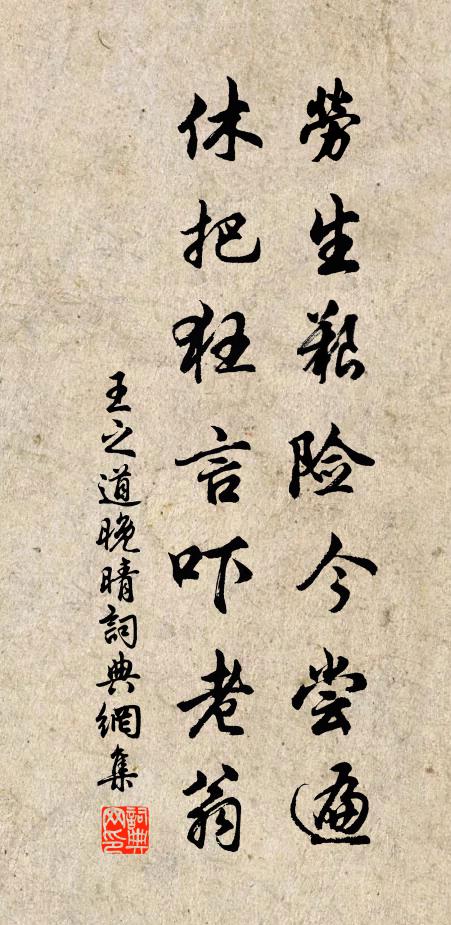 勞生艱险今尝遍
休把狂言吓老翁
王之道晚晴詞典網集
詞典
网印